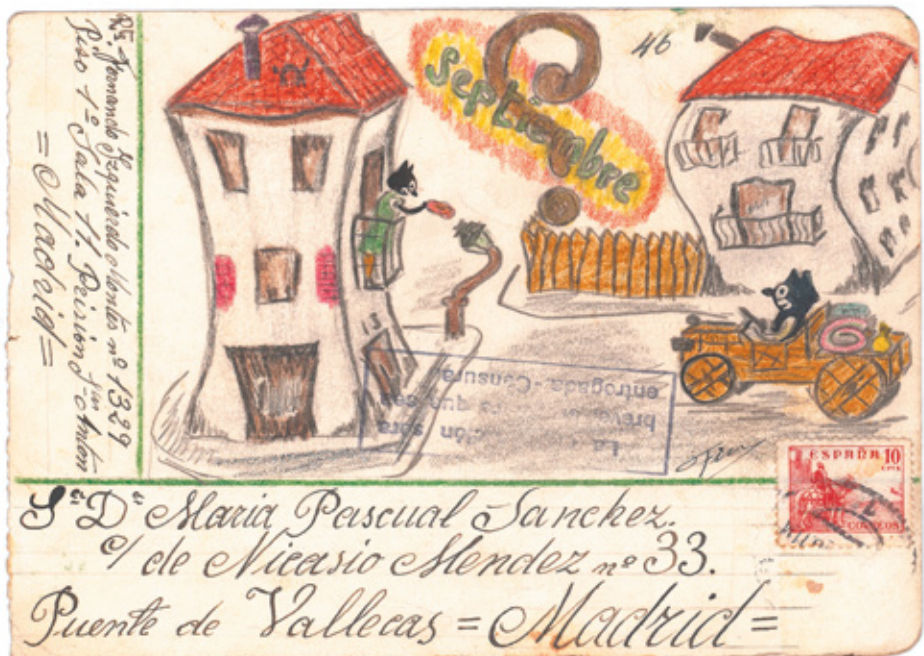 Rte Fernando Izquierdo Montes nº 1329
Piso 1º Sala 11. Prisión San Antón
=Madrid=
Septiembre
46
13
La
breve
entregada-Censura
ción sera
que sea
ESPAÑA 10
CTS
CORREOS
Sª Dª Maria Pascual Sanchez.
c/ de Nicasio Mendez nº 33.
Puente de Vallecas = Madrid =